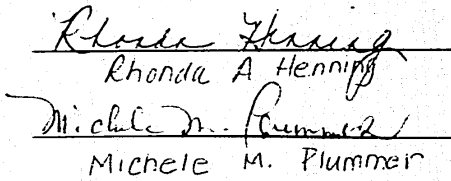 Rhonda Henning
Rhonda A Henning
Michele M. Plummer
Michele M. Plummer